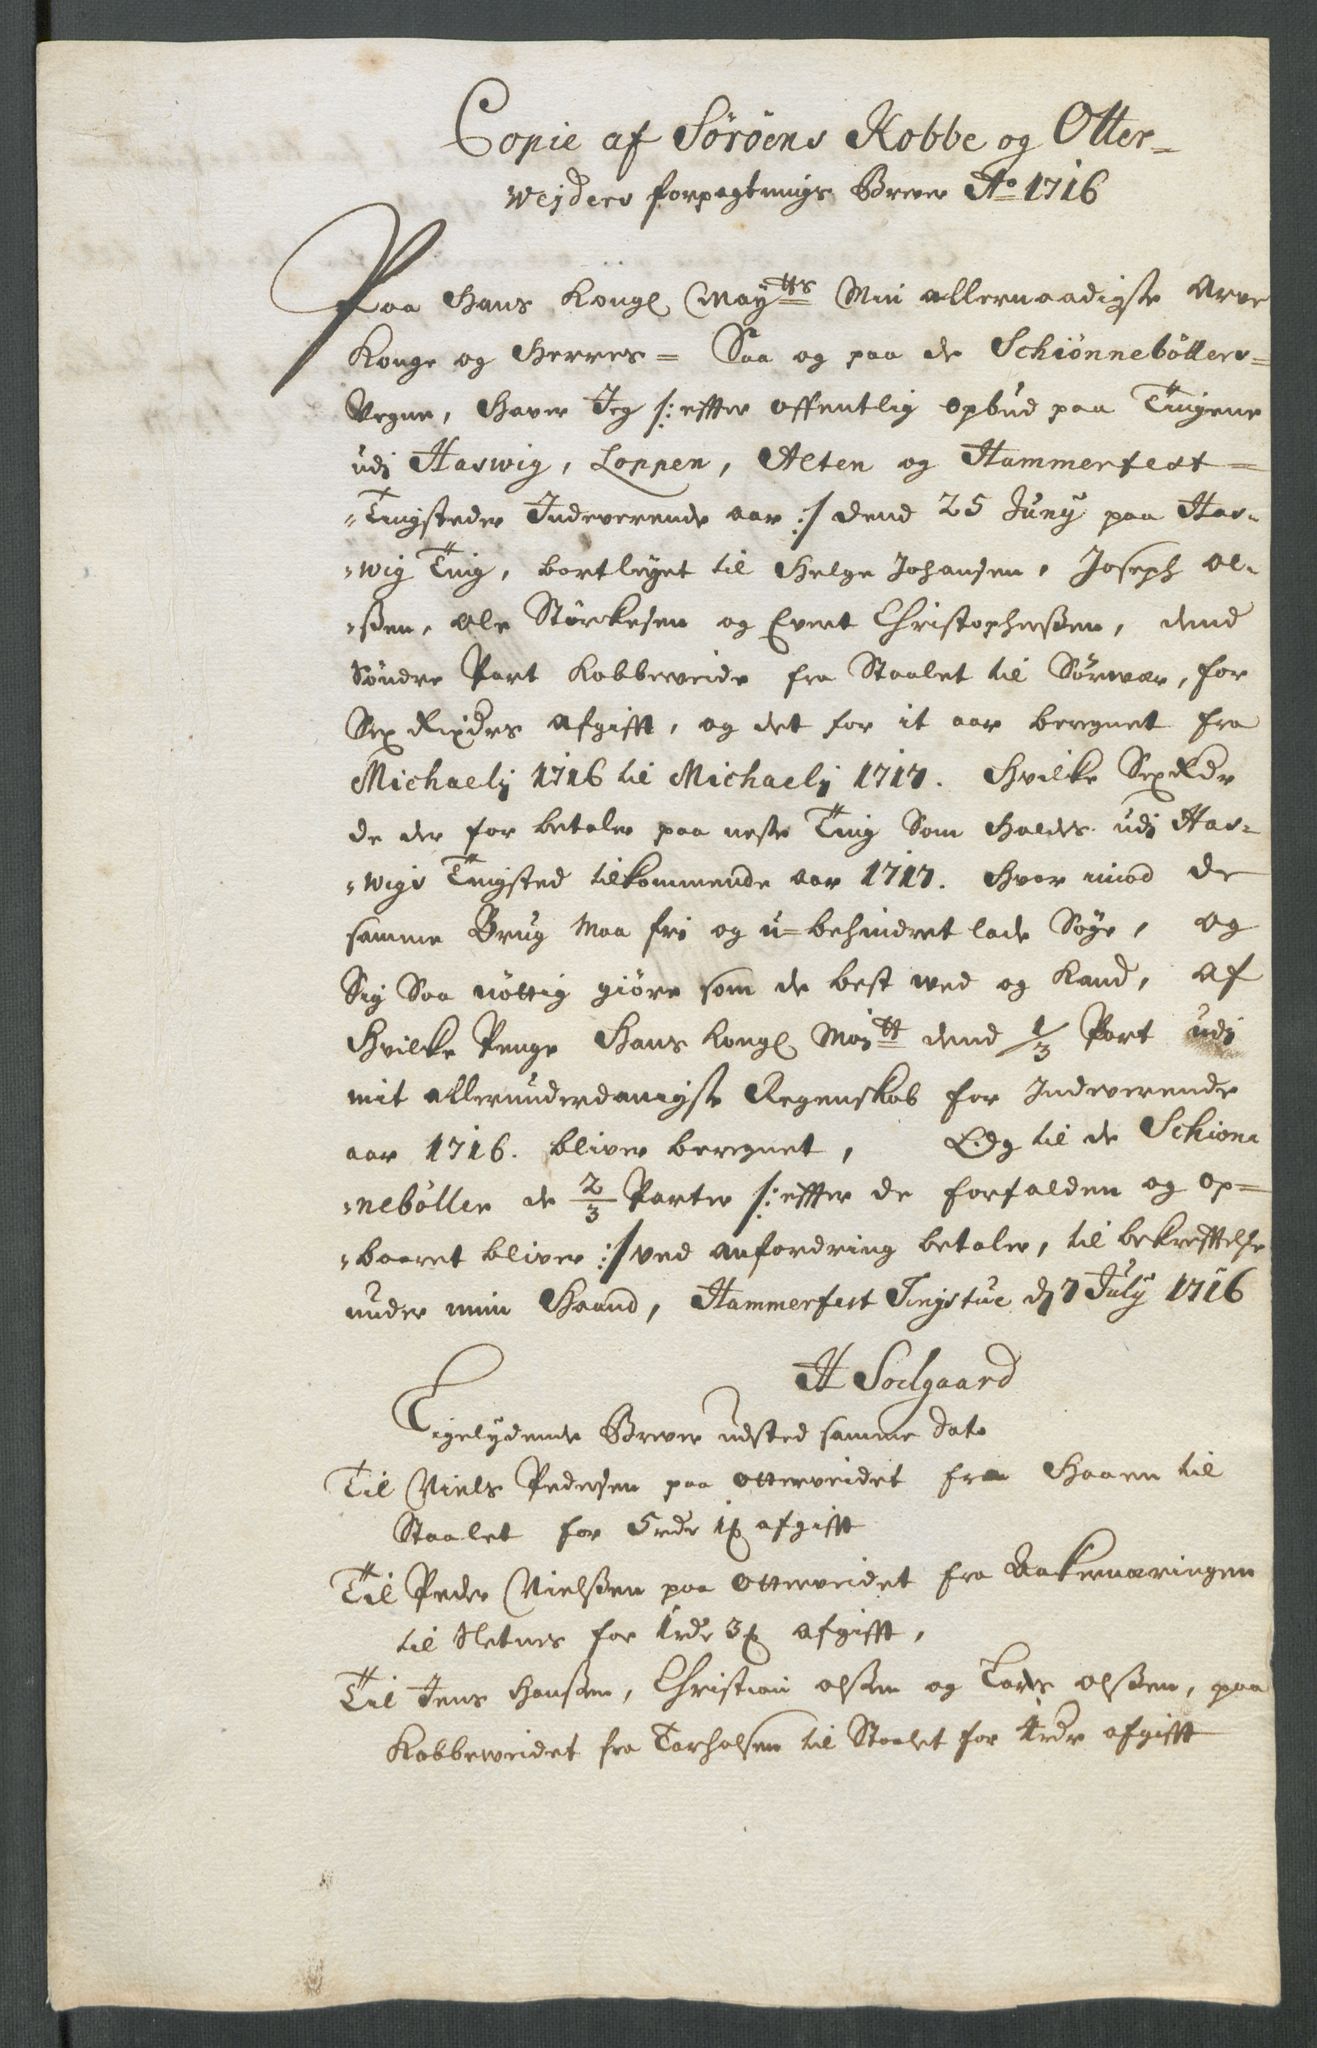 Copie af Söröens Kobbe og Otter-
Weiders forpagtnings Brever Ao 1716
Paa Hans Kongl Maytts Min allernaadigste Arve
Konge og Herres = Saa og paa de Schiönneböllers=
Vegne, Haver Jeg /: effter offentlig opbud paa Tingene
udi Haswig, Loppen, Alten og Hammerfest=
=Tingsteder Indeverende aar :/ dend 25 Juny paa Has=
=wig Ting, bortleyet til Helge Johansen, Joseph Ol=
=ßen, Ole Störckesen og Evert Christopherßen, dend
Söndre Part Kobbeveide fra Staalet til Sörvær, for
Sex Rixdrs afgifft, og det for it aar beregnet fra
Michaelij 1716 til Michaelij 1717. Hvilke Sex Rdr
de der for betaler paa neste Ting Som Holdes udi Has=
=wigs Tingsted tilkommende aar 1717. Hvor imod de
samme Brug Maa fri og u=behindret lade Söge, og
Sig Saa nöttig giöre som de best ved og Kand, af
Hvilke Penge Hans Kongl Maytt dend 1/3 Part udi
mit allerunderdanigste Regenskab for Indeverende
aar 1716. bliver beregnet, Og til de Schiön=
=neböller de 2/3 Parter /: effter de forfalden og op=
=baaret bliver :/ ved anfordring betaler, til bekrefftelse
under min Haand, Hammerfest Tingstue d 7 July 1716
H Soelgaard
Ligelydende Brever udsted samme dato
Til Niels Pedersen paa otterveidet fra Haaen til
Staalet for 5 rdr 1 ß afgifft
Til Peder Nielßen paa otterveidet fra Aakernæringen
til Sletnes for 1 rdr 3 ß afgifft,
Til Jens Hanßen, Christian olßen og Lars olßen, paa
Kobbeveidet fra Tarhalsen til Staalet for 4 rdr afgifft